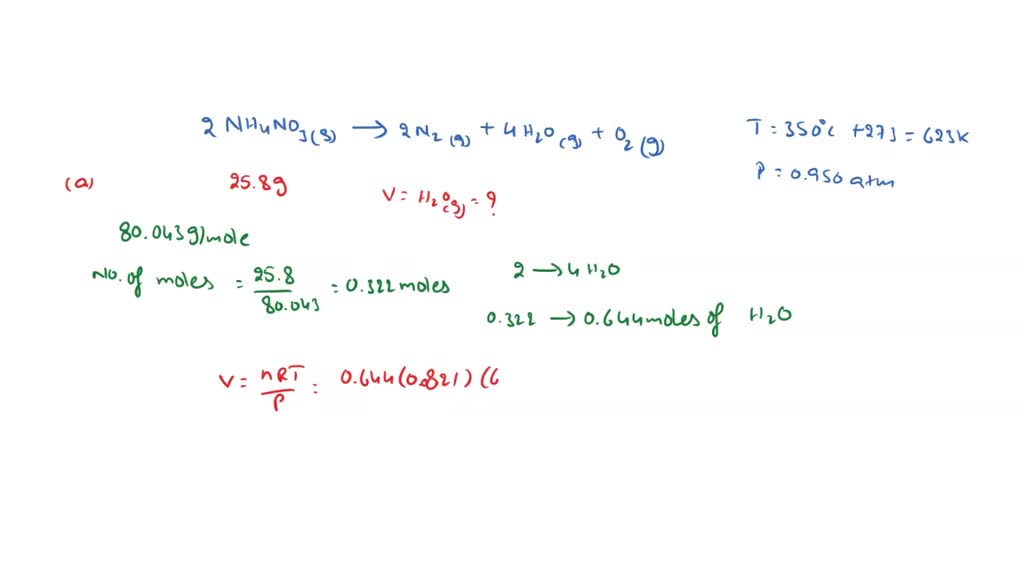 2 NH4NO3(s) → 2N2(g) + 4H2O(g) + O2(g)
T = 350°C + 273 = 623K
P = 0.950 atm
(a) 25.8g V = H2O(g) = ?
80.043g/mole
No. of moles = 25.8/80.043 = 0.322 moles
2 → 4H2O
0.322 → 0.644 moles of H2O
V = nRT/P = 0.644(0.821)(6